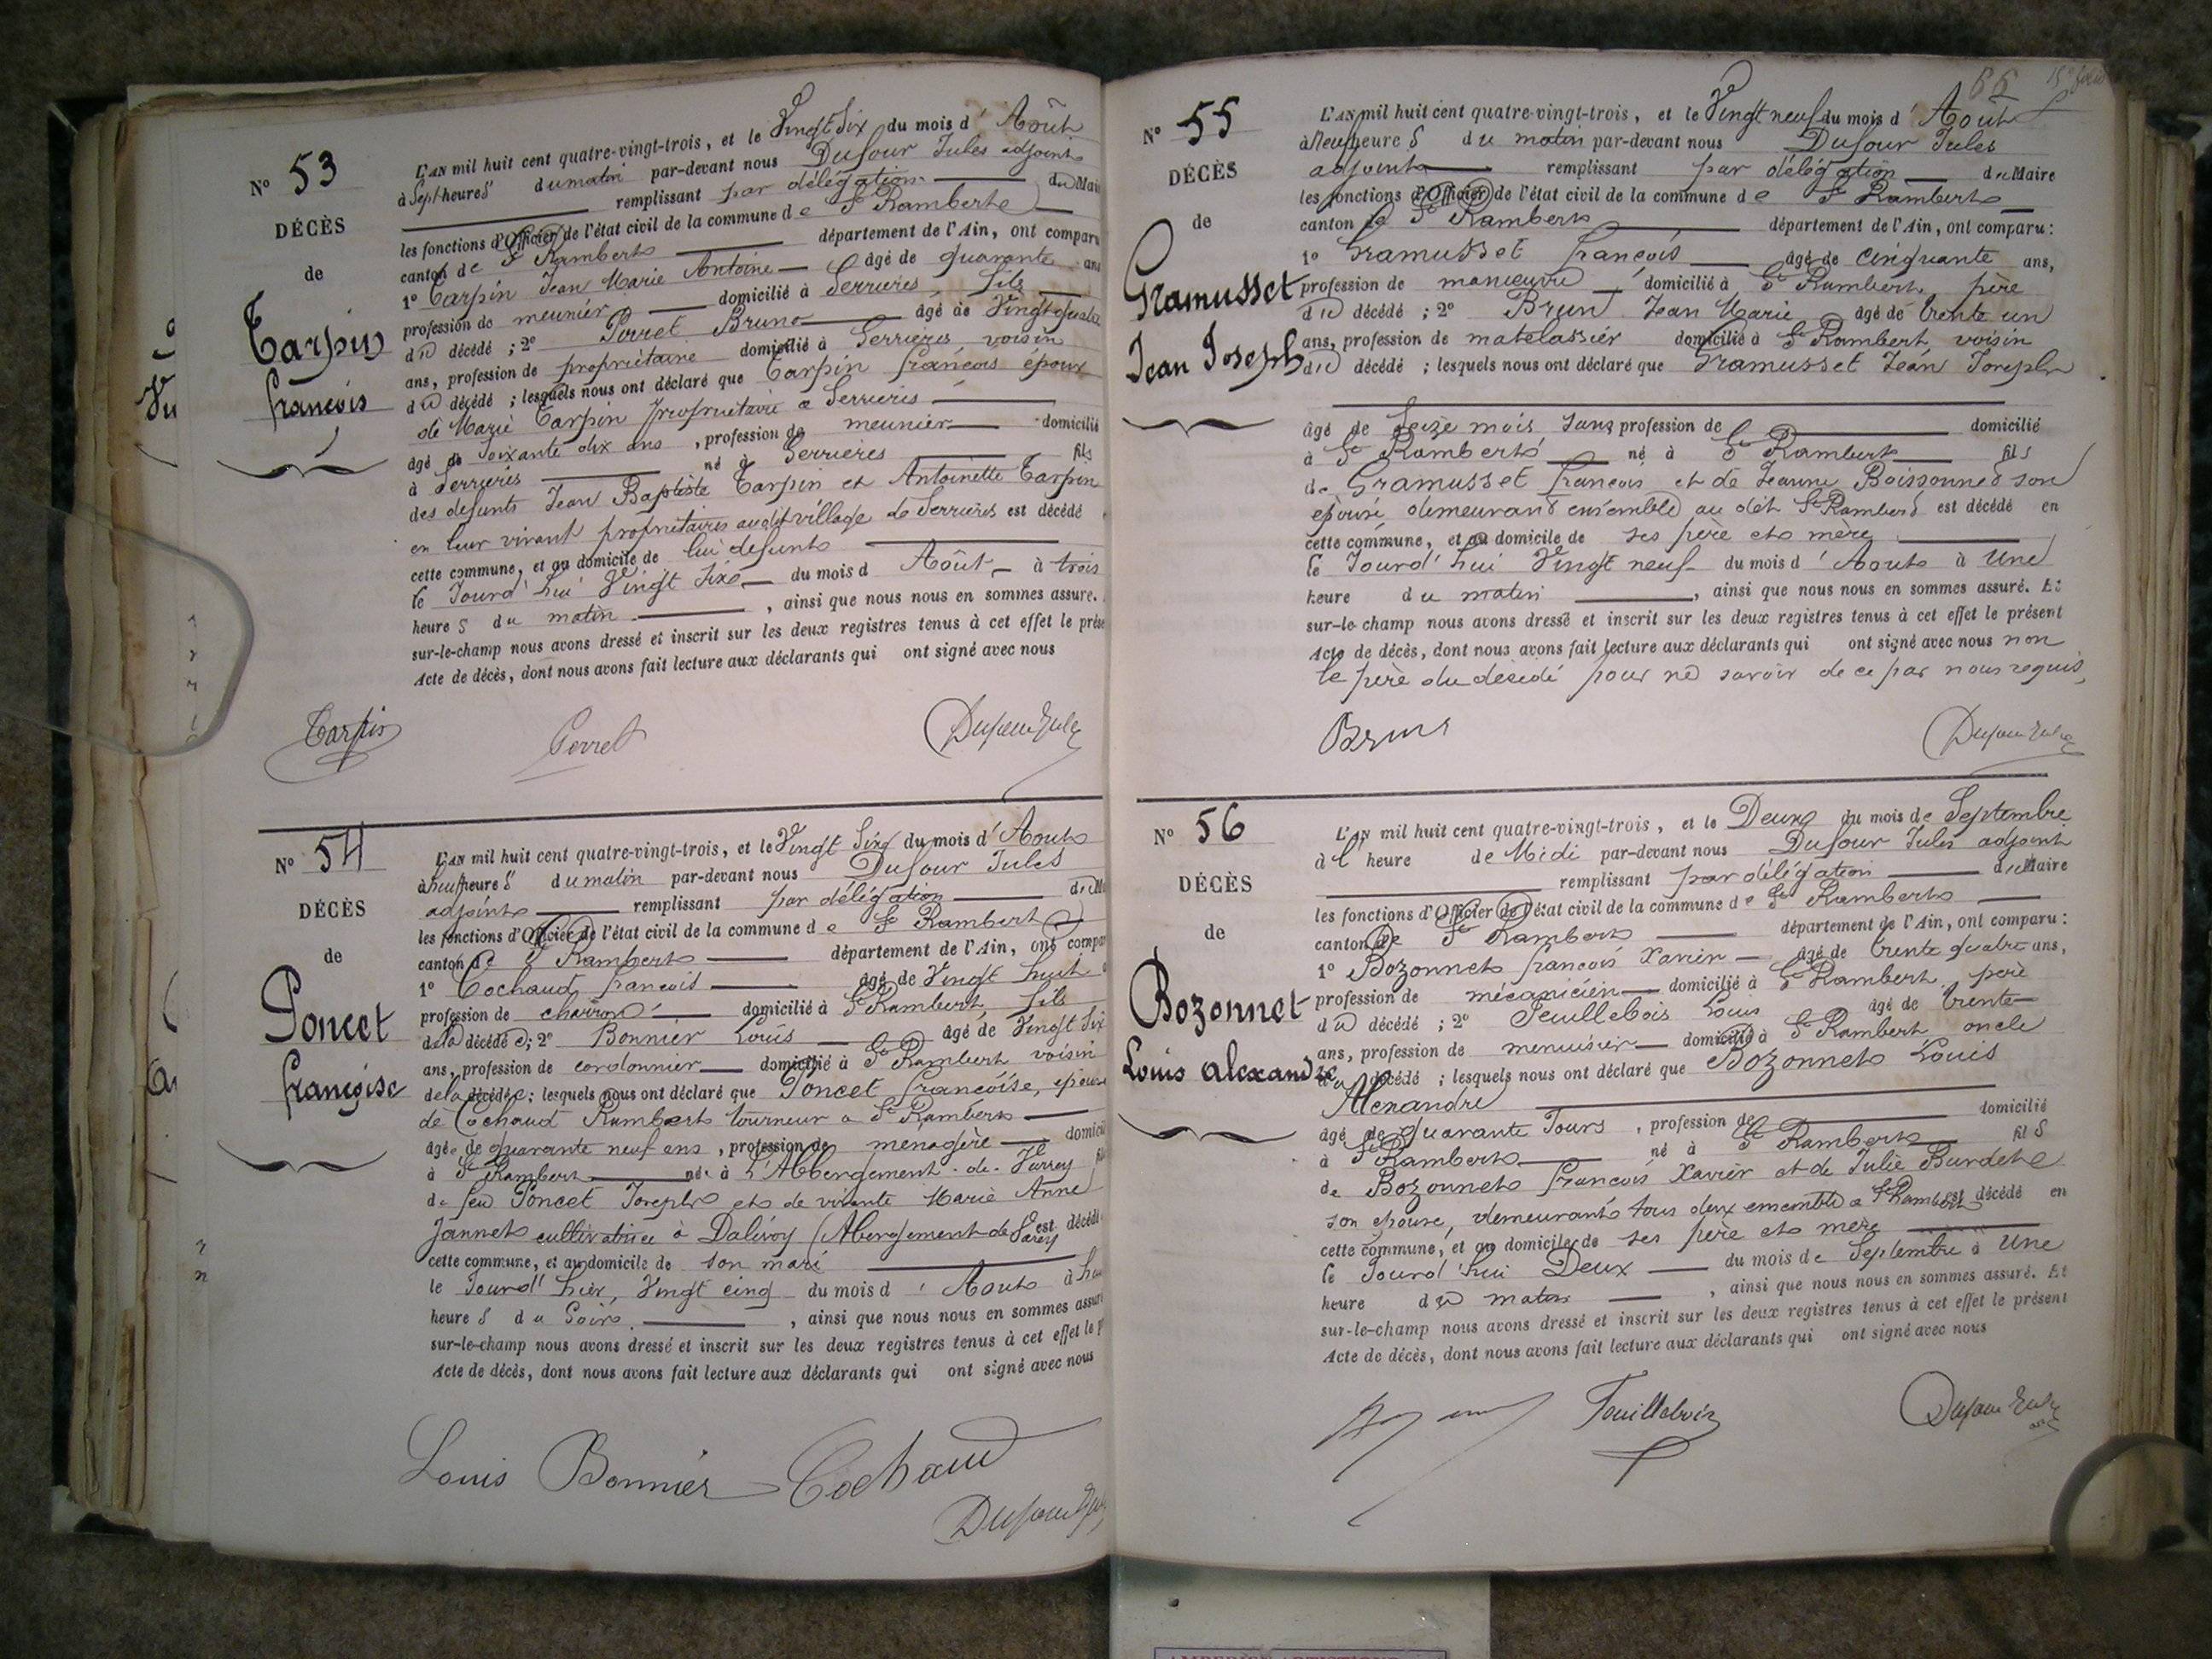 N° 53
DÉCÈS
de
Tarpin
françois
L'AN mil huit cent quatre-vingt-trois, et le Vingt Six du mois d' Août
à Sept heures du matin par-devant nous Dufour Jules adjoint
remplissant par délégation du Mai
les fonctions d'Officier de l'état civil de la commune de St Rambert
canton de St Rambert département de l'Ain, ont comparu
1° Tarpin Jean Marie Antoine âgé de quarante ans
profession de meunier domicilié à Serrières, fils
du décédé ; 2° Perret Bruno âgé de Vingt quatre
ans, profession de propriétaire domicilié à Serrières voisin
du décédé ; lesquels nous ont déclaré que Tarpin françois époux
de Marie Tarpin propriétaire à Serrières
âgé de Soixante dix ans, profession de meunier domicilié
à Serrières né à Serrières fils
des défunts Jean Baptiste Tarpin et Antoinette Tarpin
en leur vivant propriétaires audit village de Serrières est décédé
cette commune, et au domicile de lui défunt
le Jourd'hui Vingt Six du mois d Août à trois
heures du matin, ainsi que nous nous en sommes assuré.
sur-le-champ nous avons dressé et inscrit sur les deux registres tenus à cet effet le prése
Acte de décès, dont nous avons fait lecture aux déclarants qui ont signé avec nous
Tarpin Perret Dufour Jules
N° 54
DÉCÈS
de
Poncet
françoise
L'AN mil huit cent quatre-vingt-trois, et le Vingt Six du mois d' Août
à huit heures du matin par-devant nous Dufour Jules
adjoint remplissant par délégation du Ma
les fonctions d'Officier de l'état civil de la commune de St Rambert
canton de St Rambert département de l'Ain, ont compar
1° Cochaud françois âgé de Vingt huit
profession de charron domicilié à St Rambert, fils
de la décédée; 2° Bonnier Louis âgé de Vingt Six
ans, profession de cordonnier domicilié à St Rambert voisin
de la décédée; lesquels nous ont déclaré que Poncet françoise, épouse
de Cochaud Rambert tourneur à St Rambert
âgée de quarante neuf ans, profession de menagère domici
à St Rambert née à l'Abbergement-de-Varey
de feu Poncet Joseph et de vivante Marie Anne
Jannet cultivatrice à Dalivoy (Abergement de Varey est décédé
cette commune, et au domicile de son mari
le Jourd'hier, Vingt cinq du mois d' Août à
heures du Soir, ainsi que nous nous en sommes assuré
sur-le-champ nous avons dressé et inscrit sur les deux registres tenus à cet effet le p
Acte de décès, dont nous avons fait lecture aux déclarants qui ont signé avec nous
Louis Bonnier Cochaud
Dufour
66
N° 55
DÉCÈS
de
Gramusset
Jean Joseph
L'AN mil huit cent quatre-vingt-trois, et le Vingt neuf du mois d' Août
à Neuf heures du matin par-devant nous Dufour Jules
adjoint remplissant par délégation du Maire
les fonctions d'Officier de l'état civil de la commune de St Rambert
canton de St Rambert département de l'Ain, ont comparu:
1° Gramusset françois âgé de cinquante ans,
profession de manœuvre domicilié à St Rambert, père
du décédé ; 2° Brun Jean Marie âgé de trente un
ans, profession de matelassier domicilié à St Rambert, voisin
du décédé ; lesquels nous ont déclaré que Gramusset Jean Joseph
âgé de Seize mois sans profession de domicilié
à St Rambert né à St Rambert fils
de Gramusset françois et de Jeanne Boissonnet son
épouse, demeurant ensemble au dit St Rambert est décédé en
cette commune, et au domicile de ses père et mère
le Jourd'hui Vingt neuf du mois d' Août à Une
heure du matin, ainsi que nous nous en sommes assuré. Et
sur-le-champ nous avons dressé et inscrit sur les deux registres tenus à cet effet le présent
Acte de décès, dont nous avons fait lecture aux déclarants qui ont signé avec nous non
le père du décédé pour ne savoir de ce par nous requis,
Brun Dufour Jules
N° 56
DÉCÈS
de
Bozonnet
Louis Alexandre
L'AN mil huit cent quatre-vingt-trois, et le Deux du mois de Septembre
à l' heure de Midi par-devant nous Dufour Jules adjoint
remplissant par délégation du Maire
les fonctions d'Officier de l'état civil de la commune de St Rambert
canton de St Rambert département de l'Ain, ont comparu:
1° Bozonnet françois Xavier âgé de trente quatre ans,
profession de mécanicien domicilié à St Rambert, père
du décédé ; 2° Feuillebois Louis âgé de trente
ans, profession de menuisier domicilié à St Rambert oncle
du décédé ; lesquels nous ont déclaré que Bozonnet Louis
Alexandre
âgé de quarante Jours, profession de domicilié
à St Rambert né à St Rambert fils
de Bozonnet françois Xavier et de Julie Burdet
son épouse, demeurant tous deux ensemble à St Rambert est décédé en
cette commune, et au domicile de ses père et mère
le Jourd'hui Deux du mois de Septembre à Une
heure du matin, ainsi que nous nous en sommes assuré. Et
sur-le-champ nous avons dressé et inscrit sur les deux registres tenus à cet effet le présent
Acte de décès, dont nous avons fait lecture aux déclarants qui ont signé avec nous
Feuillebois Dufour Jules